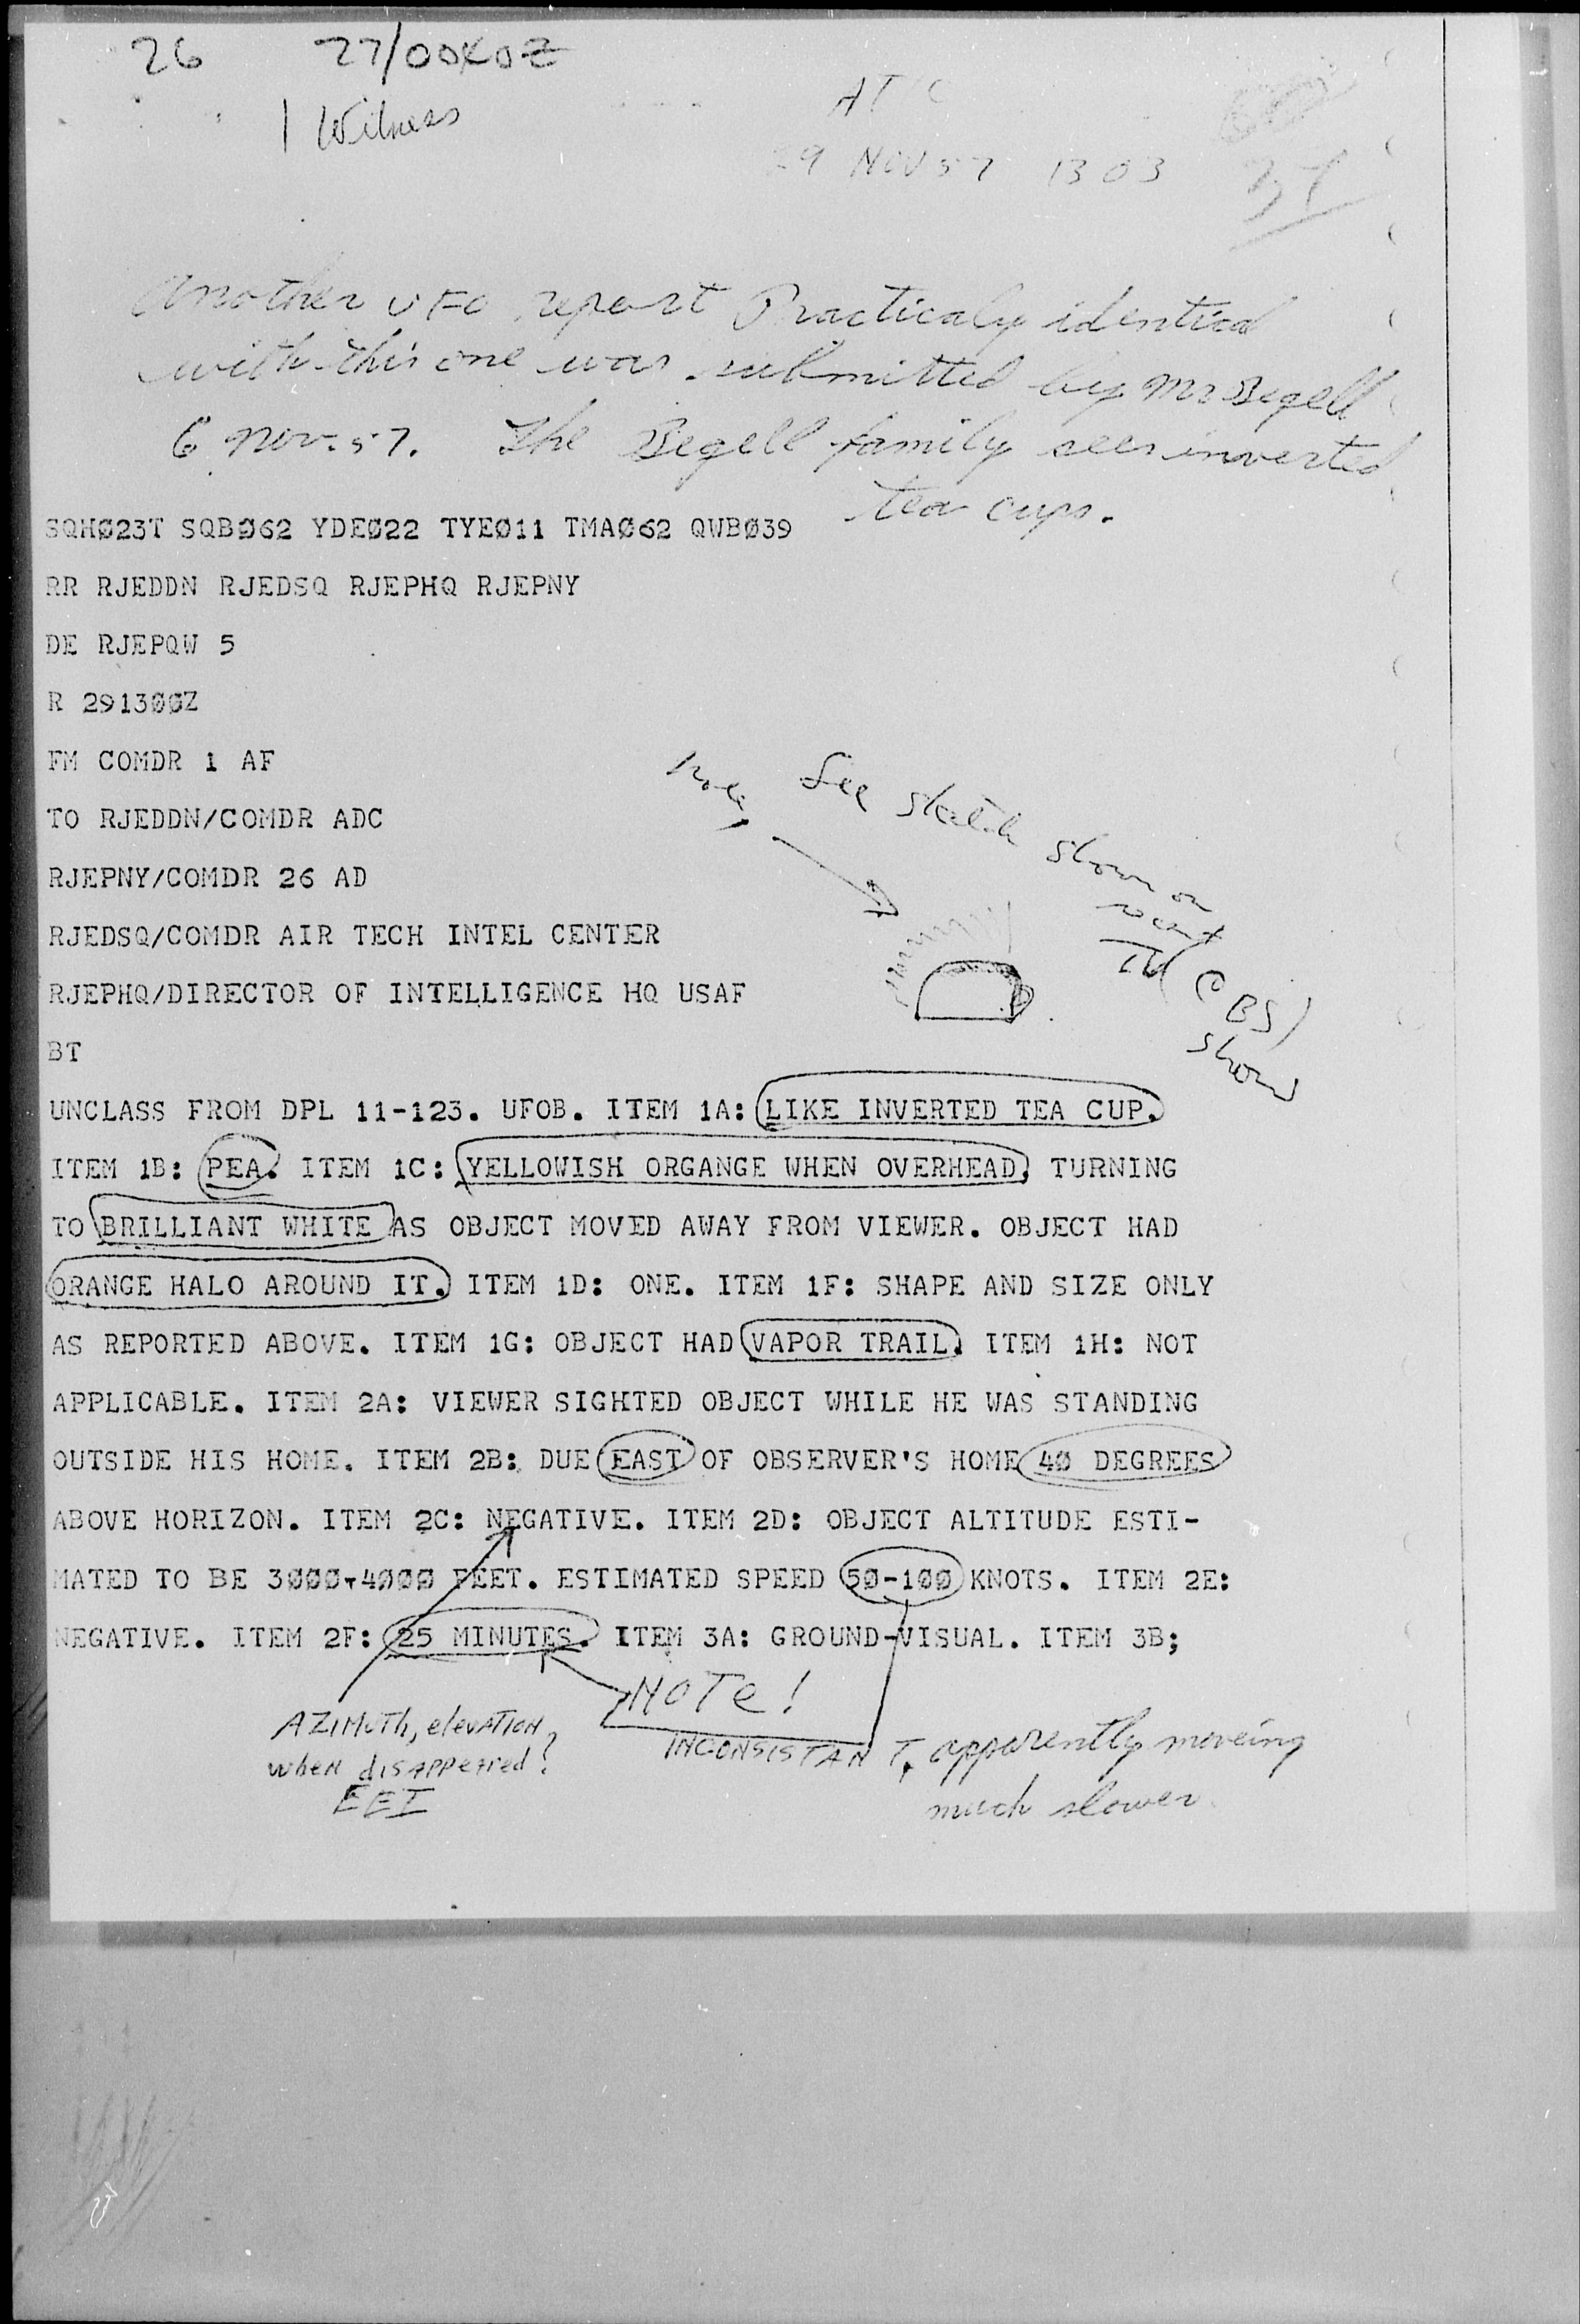 26 27/0040Z
1 Witness
29 NOV 57 1303
Another UFO report Practicaly identical
with this one was submitted by Mr Begell
6 Nov. 57. The Begell family sees inverted
tea cups.
SQHØ23T SQBØ62 YDEØ22 TYEØ11 TMAØ62 QWBØ39
RR RJEDDN RJEDSQ RJEPHQ RJEPNY
DE RJEPQW 5
R 2913ØØZ
FM COMDR 1 AF
Note See sketch shown on
TV (CBS)
show
TO RJEDDN/COMDR ADC
RJEPNY/COMDR 26 AD
RJEDSQ/COMDR AIR TECH INTEL CENTER
RJEPHQ/DIRECTOR OF INTELLIGENCE HQ USAF
BT
UNCLASS FROM DPL 11-123. UFOB. ITEM 1A: LIKE INVERTED TEA CUP.
ITEM 1B: PEA. ITEM 1C: YELLOWISH ORGANGE WHEN OVERHEAD, TURNING
TO BRILLIANT WHITE AS OBJECT MOVED AWAY FROM VIEWER. OBJECT HAD
ORANGE HALO AROUND IT. ITEM 1D: ONE. ITEM 1F: SHAPE AND SIZE ONLY
AS REPORTED ABOVE. ITEM 1G: OBJECT HAD VAPOR TRAIL. ITEM 1H: NOT
APPLICABLE. ITEM 2A: VIEWER SIGHTED OBJECT WHILE HE WAS STANDING
OUTSIDE HIS HOME. ITEM 2B: DUE EAST OF OBSERVER'S HOME 4Ø DEGREES
ABOVE HORIZON. ITEM 2C: NEGATIVE. ITEM 2D: OBJECT ALTITUDE ESTI-
MATED TO BE 3ØØØ-4ØØØ FEET. ESTIMATED SPEED 5Ø-1ØØ KNOTS. ITEM 2E:
NEGATIVE. ITEM 2F: 25 MINUTES. ITEM 3A: GROUND-VISUAL. ITEM 3B;
NOTe!
AZIMUTh, elevATION
when disAppeAred?
EEI
INCONSISTANT, apparently moveing
much slower